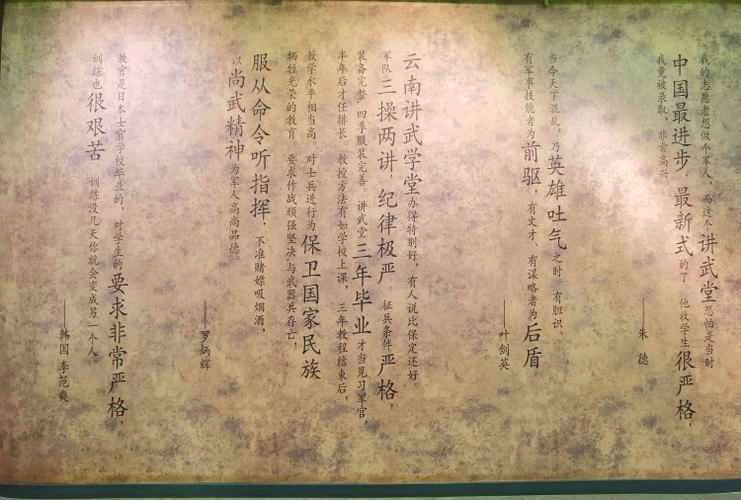 我的志愿老想做个军人，而这个讲武堂恐怕是当时
中国最进步，最新式的了，他收学生很严格，
我竟被录取，非常高兴
——朱　德
当今天下混乱，乃英雄吐气之时。有胆识、
有军事技能者为前驱，有文才、有谋略者为后盾
——叶剑英
云南讲武学堂办得特别好，有人说比保定还好。
军队三操两讲，纪律极严。征兵条件严格，
装备完整　四季服装完善　讲武堂三年毕业才当见习军官，
半年后才任排长　教授方法有如学校上课，　三年教程结束后，
教学水平相当高　对士兵进行为保卫国家民族
牺牲光荣的教育　要求作战顽强坚决，与武器共存亡，
服从命令听指挥，不准赌嫖吸烟酒，
以尚武精神为军人高尚品德。
——罗炳辉
教官是日本士官学校毕业的，对学生的要求非常严格，
训练也很艰苦　训练没几天你就会变成另一个人。
——韩国 李范奭